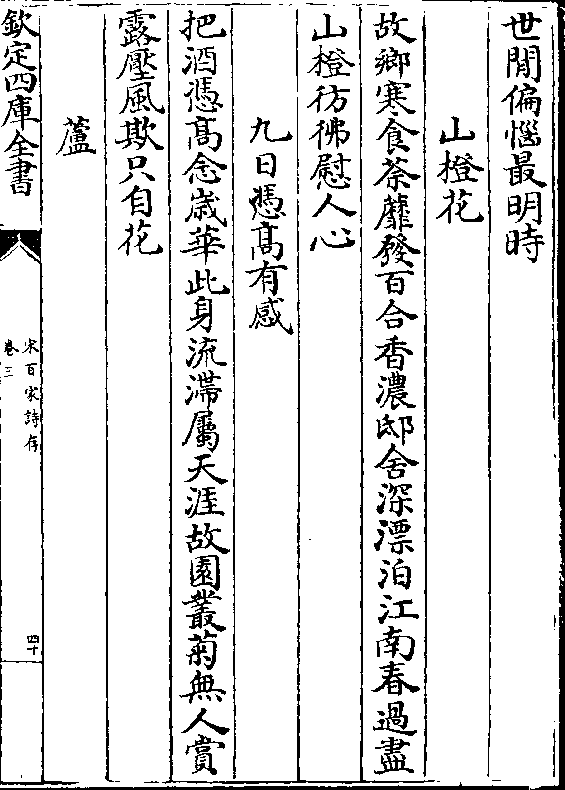 世間偏惱最明時
山橙花
故鄉寒食荼蘼發百合香濃邸舍深漂泊江南春過盡
山橙彷彿慰人心
九日憑高有感
把酒憑高念歲華此身流滯屬天涯故園叢菊無人賞
露壓風欺只自花
蘆
欽定四庫全書
宋百家詩存
卷三
四十